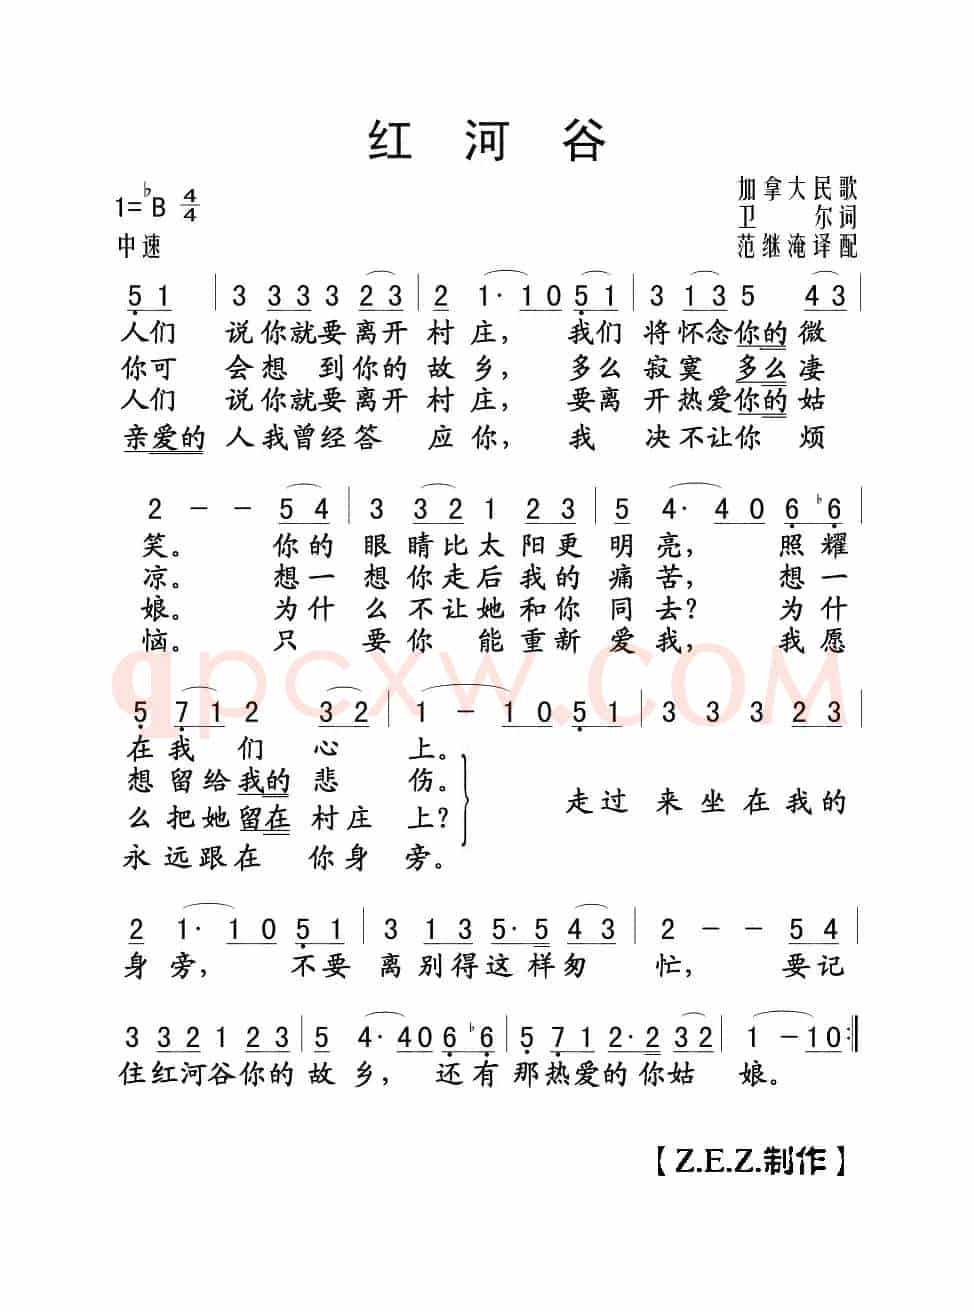 红 河 谷
1=♭B 4/4
加拿大民歌
卫 尔词
中速
范继淹译配
5 1 | 3 3 3 3 2 3 | 2 1· 1 0 5 1 | 3 1 3 5 4 3 |
人们 说你就要离开 村庄， 我们 将怀念你的微
你可 会想 到你的 故乡， 多么 寂寞 多么凄
人们 说你就要离开 村庄， 要离 开热爱你的姑
亲爱的 人我曾经答 应你， 我 决不让你 烦
2 - - 5 4 | 3 3 2 1 2 3 | 5 4· 4 0 6 ♭6 |
笑。 你的 眼睛比太阳更 明亮， 照耀
凉。 想一 想你走后我的 痛苦， 想一
娘。 为什 么不让她和你 同去？ 为什
恼。 只 要你 能重新 爱我， 我愿
qpcxw.COM
5 7 1 2 3 2 | 1 - 1 0 5 1 | 3 3 3 2 3 |
在我 们 心 上。
想留给我的悲 伤。
走过 来坐在我的
么把她留在村庄 上？
永远跟在 你身 旁。
2 1· 1 0 5 1 | 3 1 3 5· 5 4 3 | 2 - - 5 4 |
身旁， 不要 离别得这样匆 忙， 要记
3 3 2 1 2 3 | 5 4· 4 0 6 ♭6 | 5 7 1 2· 2 3 2 | 1 - 1 0 :‖
住红河谷你的 故乡， 还有 那热爱的你姑 娘。
【Z.E.Z.制作】